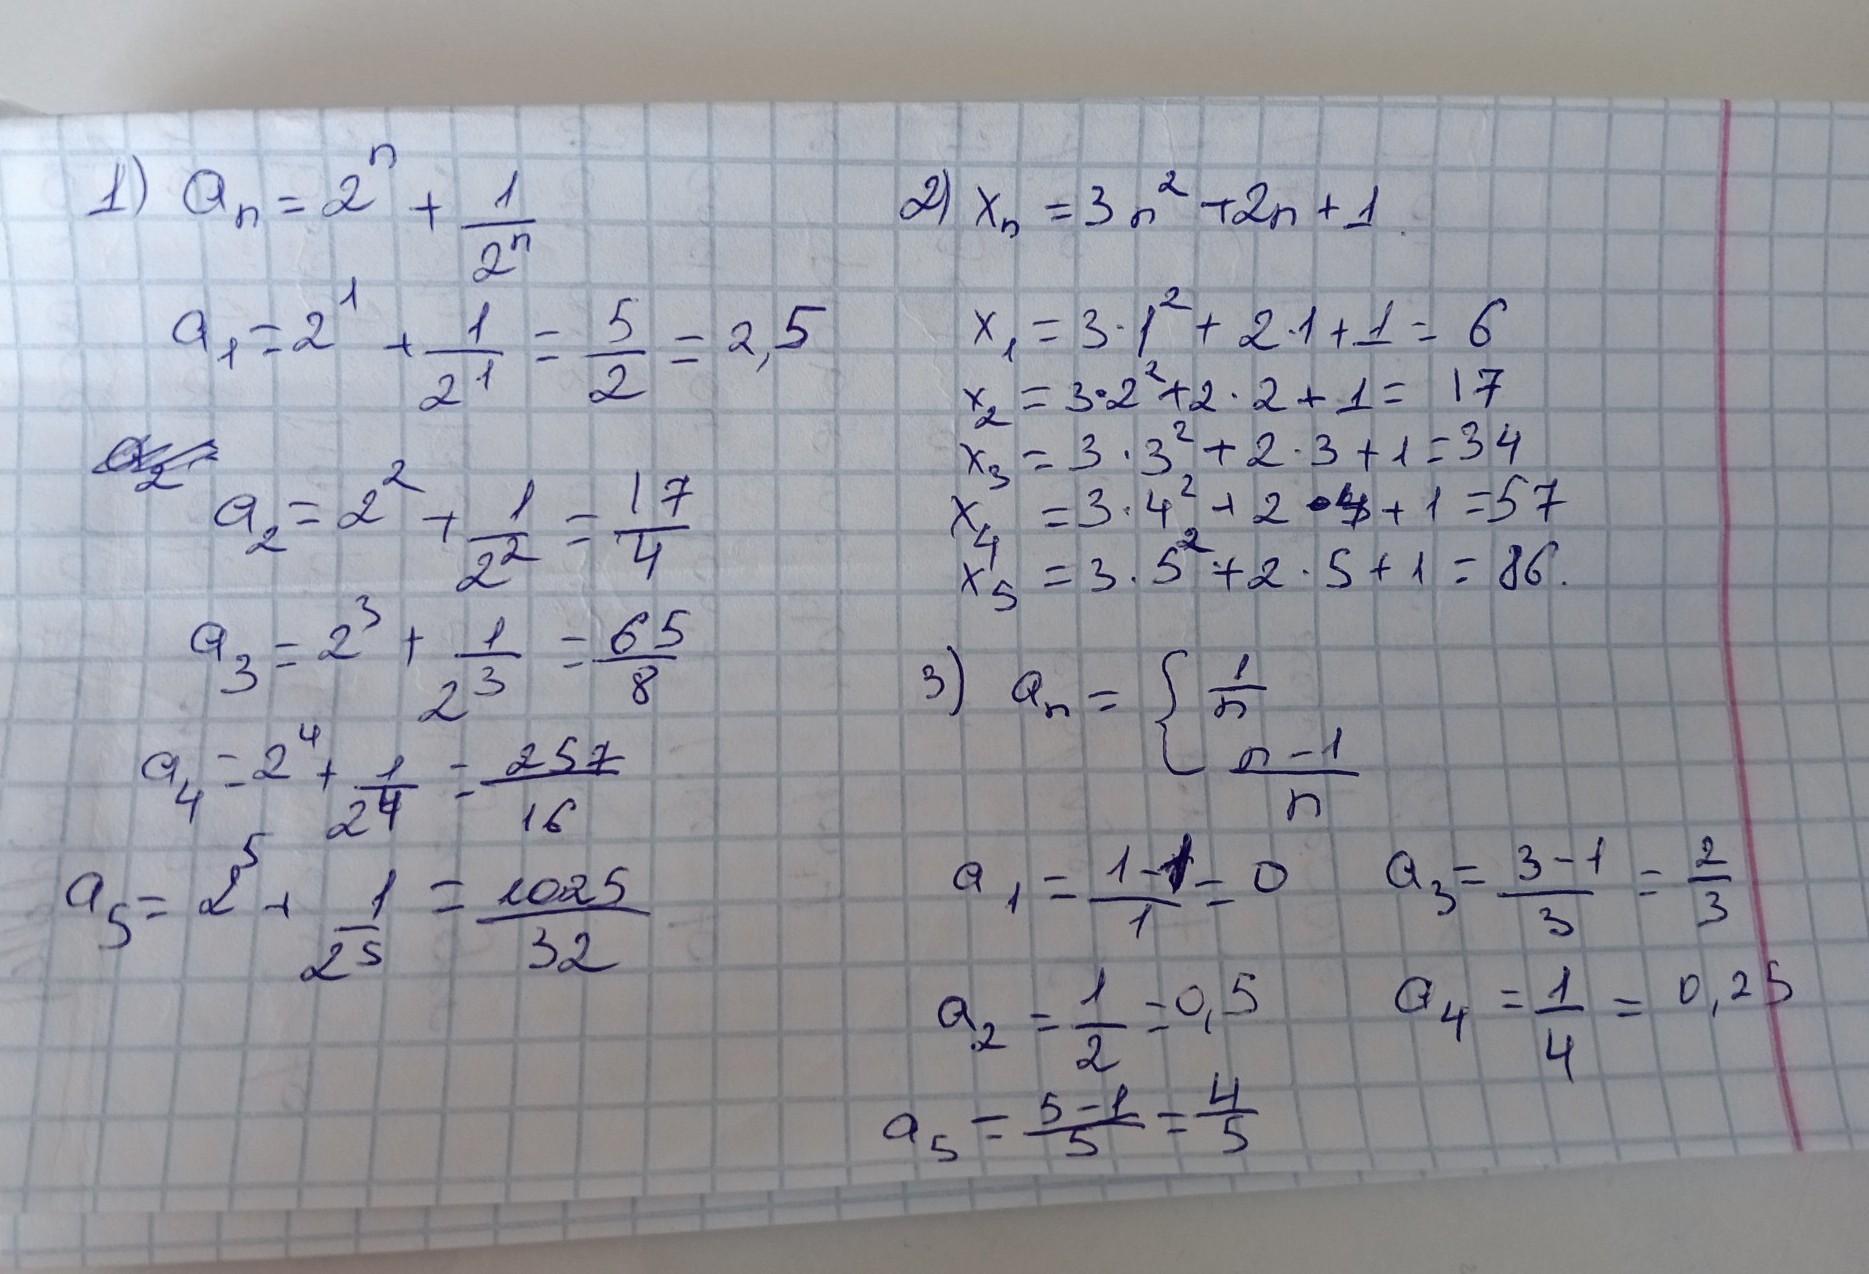 1) aₙ = 2ⁿ + 1/2ⁿ
a₁ = 2¹ + 1/2¹ = 5/2 = 2,5
a₂
a₂ = 2² + 1/2² = 17/4
a₃ = 2³ + 1/2³ = 65/8
a₄ = 2⁴ + 1/2⁴ = 257/16
a₅ = 2⁵ + 1/2⁵ = 1025/32
2) xₙ = 3n² + 2n + 1
x₁ = 3·1² + 2·1 + 1 = 6
x₂ = 3·2² + 2·2 + 1 = 17
x₃ = 3·3² + 2·3 + 1 = 34
x₄ = 3·4² + 2·4 + 1 = 57
x₅ = 3·5² + 2·5 + 1 = 86.
3) aₙ = { 1/n
(n-1)/n
a₁ = (1-1)/1 = 0 a₃ = (3-1)/3 = 2/3
a₂ = 1/2 = 0,5 a₄ = 1/4 = 0,25
a₅ = (5-1)/5 = 4/5